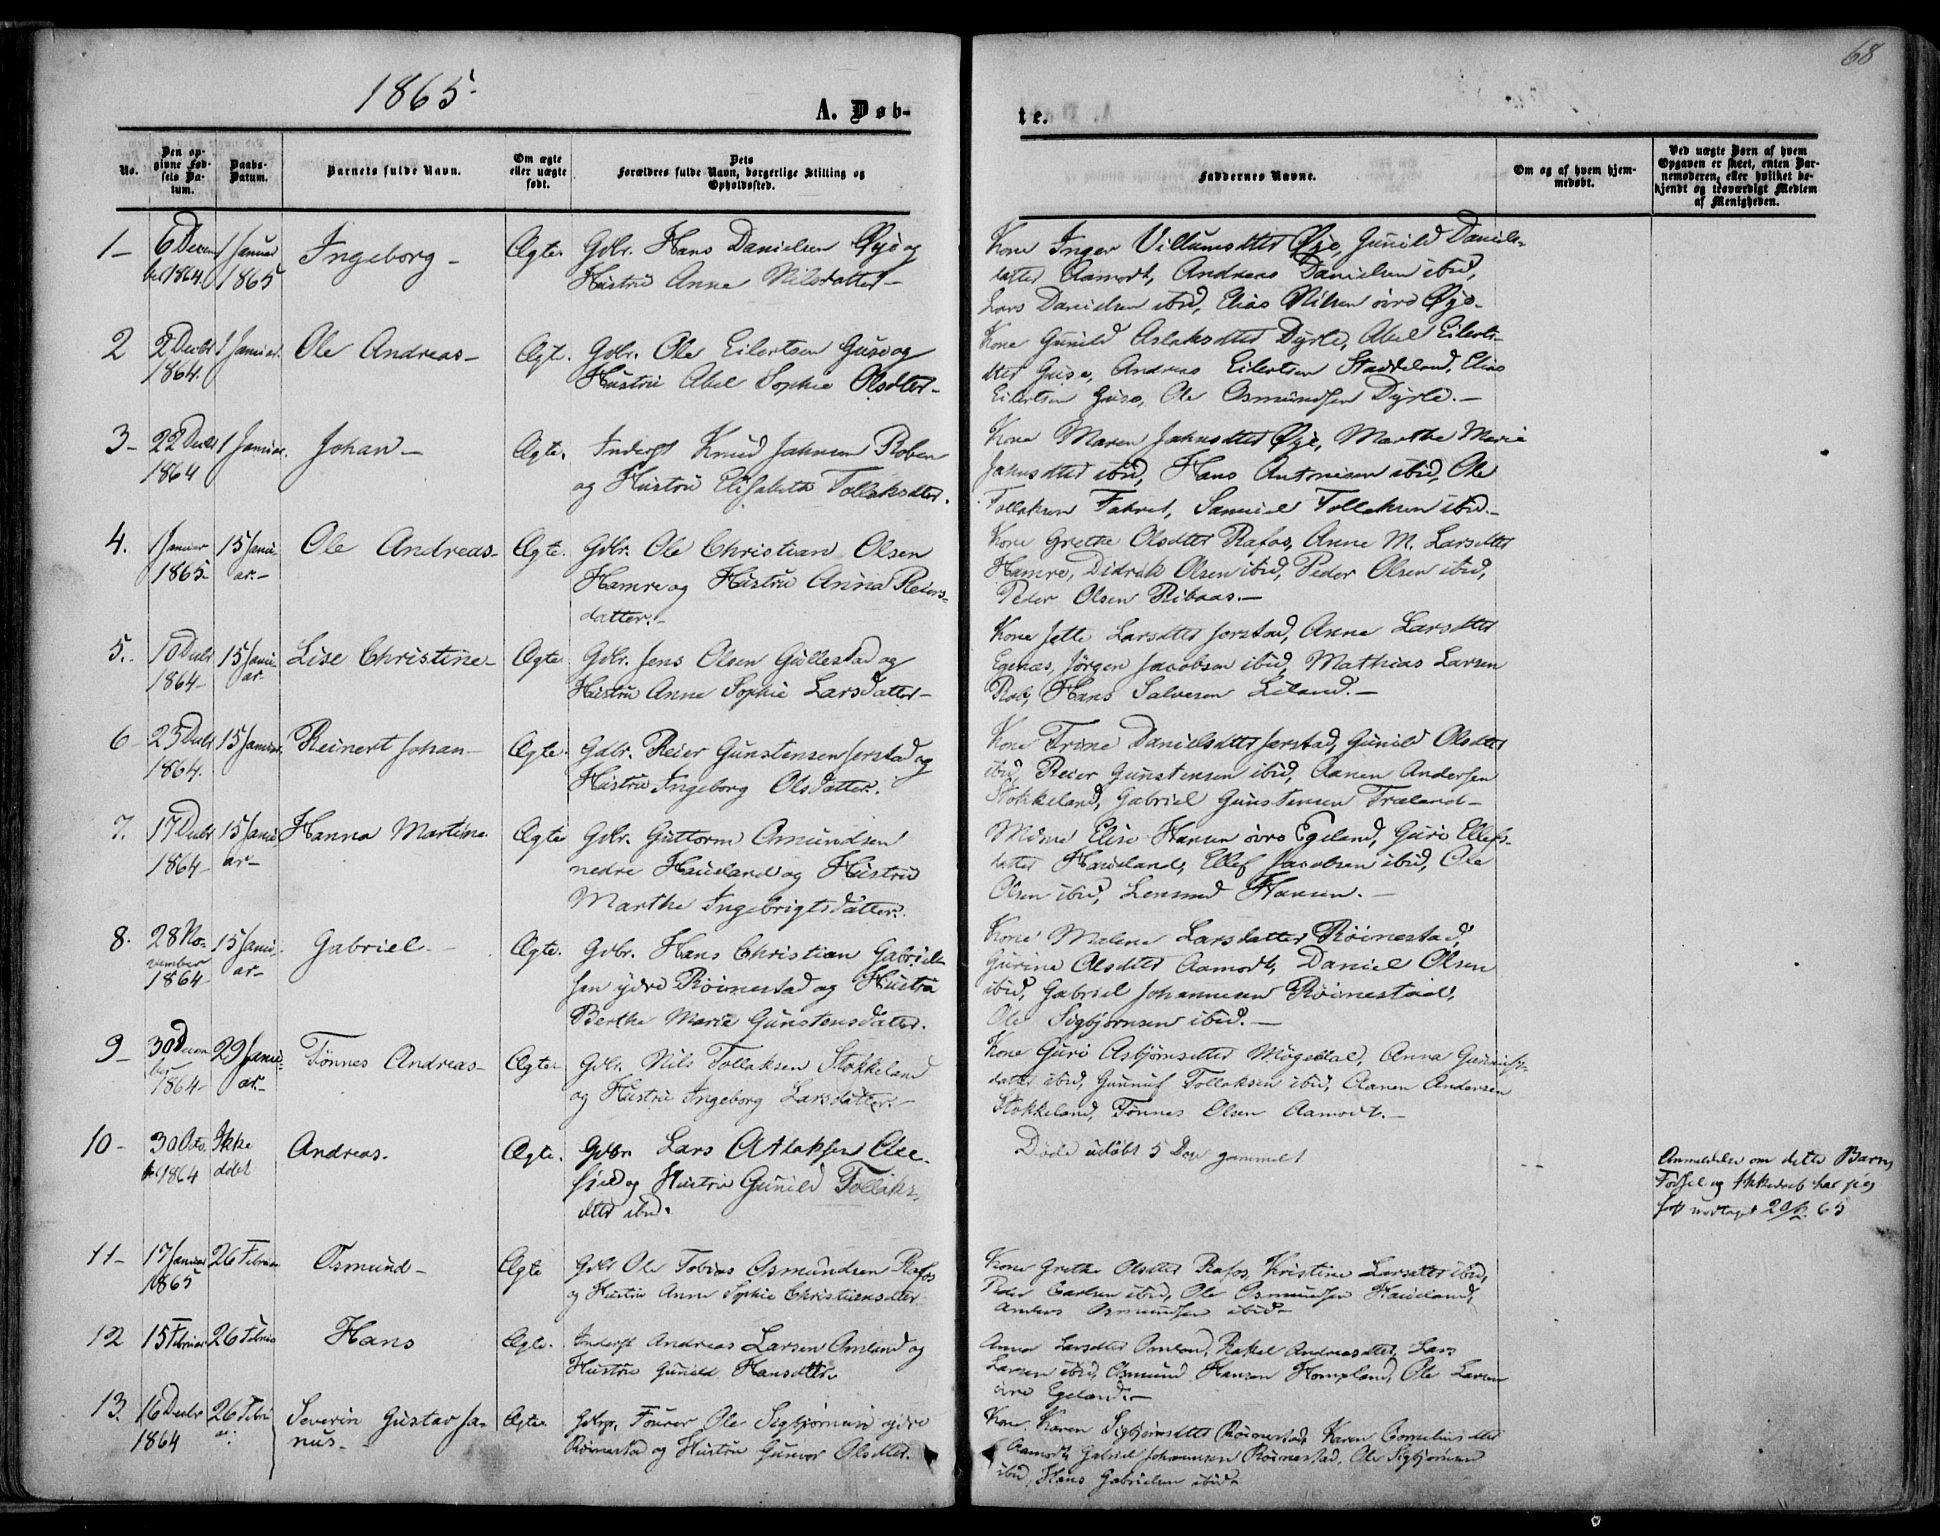 68
1865.
A. Døb-
te.
No.
Den op-
givne Fød-
sels Da-
tum.
Daabs-
Datum.
Barnets fulde Navn.
Om ægte
eller uægte
født.
Dets
Forældres fulde Navn, borgerlige Stilling og
Opholdssted.
Faddernes Navne.
Om og af hvem hjem-
medøbt.
Ved uægte Børn af hvem
Opgaven er skeet, enten Bar-
nemoderen, eller hvilket be-
kjendt og troværdigt Medlem
af Menigheden.
1-
6 Decem
ber 1864.
1 Januar
1865
Ingeborg -
Ægte.
Gdbr. Hans Danielsen Øye og
Hustru Anne Nilsdatter -
Kone Inger Villumsdtter Øye, Gunild Daniels-
datter Aamodt, Andreas Danielsen ibid,
Lars Danielsen ibid, Elias Nilsen øvre Øye-
2
2 Decbr
1864.
1 Januar.
Ole Andreas -
Ægt.
Gdbr. Ole Eilertsen Guse og
Hustru Abel Sophie Olsdtter -
Kone Gunild Aslaksdtter Dyrle, Abel Eilerts-
dtter Guse, Andreas Eilertsen Staddeland, Elias
Eilertsen Guse, Ole Osmundsen Dyrle. -
3-
22 Decbr
1864
1 Januar.
Johan -
Ægte.
Inderst Knud Jahnsen Roben
og Hustru Elisabeth Tollaksdtter.
Kone Maren Jahnsdtter Øye, Marthe Marie
Jahnsdtter ibid, Hans Antonisen ibid, Ole
Tollaksen Fahret, Samuel Tollaksen ibid. -
4.
1 Januar
1865-
15 Janu-
ar. -
Ole Andreas -
Ægte.
Gdbr. Ole Christian Olsen
Hamre og Hustru Anna Reiers-
datter. -
Kone Grethe Olsdtter Rafos, Anne M. Larsdtter
Hamre, Didrik Olsen ibid, Peder Olsen ibid,
Peder Olsen Ribaas. -
5.
10 Decbr
1864-
15 Janu-
ar.
Lise Christine -
Ægte
Gdbr. Jens Olsen Gullestad og
Hustru Anne Sophie Larsdatter -
Kone Jette Larsdtter Jerstad, Anne Larsdtter
Egenæs, Jørgen Jacobsen ibid, Mathias Larsen
Hans Salvesen Eiland. -
6-
23 Decbr
1864.
15 Januar.
Reinert Johan -
Ægte.
Gdbr. Reier Gunstensen Jerstad og
Hustru Ingeborg Olsdatter.
Kone Trine Danielsdtter Jerstad, Gunild Olsdtter
ibid, Reier Gunstensen ibid, Aanen Andersen
Stokkeland, Gabriel Gunstensen Træland -
7.
17 Decbr
1864-
15 Janu
ar -
Hanna Martine.
Ægte
Gdbr. Guttorm Amundsen
nedre Haueland og Hustru
Marthe Ingebrigtsdatter.
Elise Hansen øvre Egeland, Guri Ellefs-
datter Haueland, Ellef Jacobsen ibid, Ole
Olsen ibid, Lensmd Hansen. -
8.
28 No-
vember
1864-
15 Janu-
ar -
Gabriel. -
Ægte.
Gdbr. Hans Christian Gabriel-
sen ydre Røinestad og Hustru
Berthe Marie Gunstensdatter.
Kone Malene Larsdatter Røinestad,
Gurine Olsdtter Aamodt, Daniel Olsen
ibid, Gabriel Johannesen Røinestad,
Ole Sigbjørnsen ibid. -
9-
30 Decem
ber
1864-
29 Janu-
ar. -
Tønnes Andreas -
Ægte.
Gdbr. Nils Tollaksen Stokkeland
og Hustru Ingeborg Larsdatter. -
Kone Guri Asbjørnsdtter Møgedal, Anna Gunnufs-
datter ibid, Gunnuf Tollaksen ibid, Aanen Andersen
Stokkeland, Tønnes Olsen Aamodt. -
10-
30 Octo
ber 1864
Ikke
døbt
Andreas.
Ægte.
Gdbr. Lars Atlaksen
og Hustru Gunild Tollaks-
dtter ibid.
Døde udøbt 5 Dage gammel
Anmeldelse om dette Barns
Fødsel og har jeg
modtaget 65
11-
17 Januar
1865
26 Februar
Osmund -
Ægte
Gdbr Ole Tobias Osmundsen Rafos
og Hustru Anne Sophie Christiansdtter
Kone Grethe Olsdtter Rafos, Kristine Larsdtter ibid,
Peder Carlsen ibid, Ole Osmundsen Haueland,
Anders Osmundsen ibid -
12
15 Februar
26 Februar
Hans
Ægte.
Inderst Andreas Larsen Omland og
Hustru Gunild Hansdtter.
Anna Larsdtter Omland, Rakel Andreasdtter, Lars
Larsen ibid, Osmund Hansen Hompland, Ole Larsen
øvre Egeland. -
13.
16 Decbr
1864
26 Febru
ar.
Severin Gustav Ja-
nus. -
Ægte.
Ole Sigbjørnsen ydre
Røinestad og Hustru Gunvor Olsdtter.
Kone Karen Sigbjørnsdtter Røinestad, Karen Corneliusdtter
Aamodt, Gabriel Johannesen Røinestad, Ole Sigbjørnsen
ibid, Hans Gabrielsen ibid -